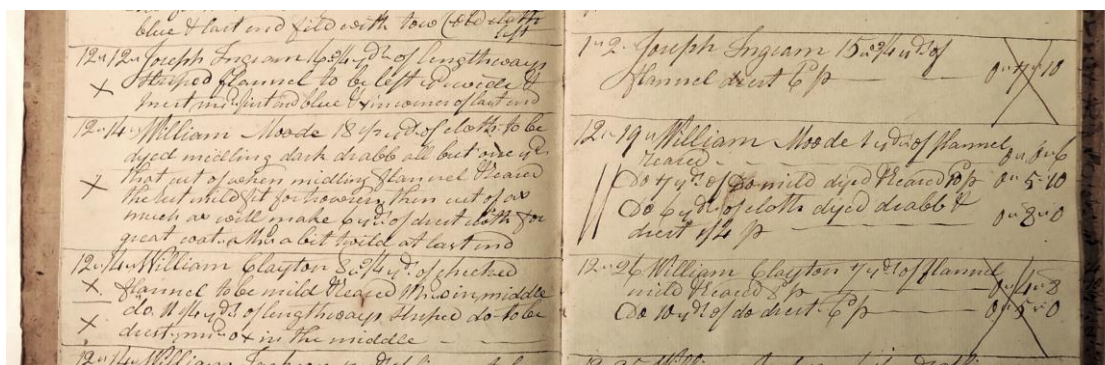 blue & last end fild with tow
left
12 " 12 " Joseph Ingram 16 " 3/4 yds of lengthways
Striped flannel to be left wide &
first and blue & x in corner of last end
12 " 14 " William Moode 18 yds of cloth to be
dyed midling dark drabb all but one yd
that cut of when midling flannel & leard
the last mild fit for then cut of as
much as will make 6 yds of drest cloth for
great coat a bit twild at last end
12 " 14 " William Clayton 8 " 3/4 yds of checked
flannel to be mild & leard in middle
do. 11 " 3/4 yds of lengthways Striped do to be
drest x in the middle
12 " 14 " William
1 " 2 " Joseph Ingram 15 " 3/4 yds of
flannel drest 6 p 0 " 7 " 10
12 " 19 " William Moode 1 yd of flannel
leard 0 " 0 " 6
Do 7 yds of Do mild dyed & leard 10 p 0 " 5 " 10
Do 6 yds of cloth dyed drabb &
drest 1/4 p 0 " 8 " 0
12 " 26 William Clayton 7 yds of flannel
mild & leard 8 p 0 " 4 " 8
Do 10 yds of do drest 6 p 0 " 5 " 0